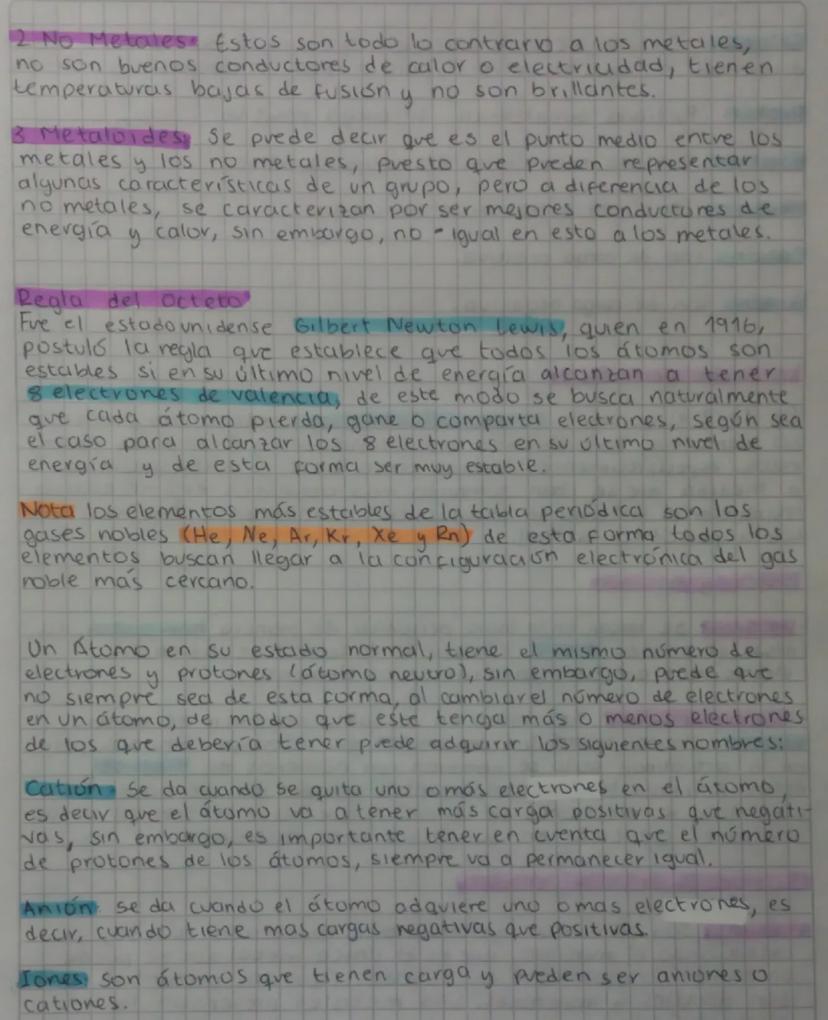 2 No Metales: Estos son todo lo contrario a los metales,
no son buenos conductores de calor o electricidad, tienen
temperaturas bajas de fusión y no son brillantes.
3 Metaloides: Se puede decir que es el punto medio entre los
metales y los no metales, puesto que pueden representar
algunas características de un grupo, pero a diferencia de los
no metales, se caracterizan por ser mejores conductores de
energía y calor, sin embargo, no - igual en esto a los metales.
Regla del Octeto
Fue el estadounidense Gilbert Newton Lewis, quien en 1916,
postuló la regla que establece que todos los átomos son
estables si en su último nivel de energía alcanzan a tener
8 electrones de valencia, de este modo se busca naturalmente
que cada átomo pierda, gane o comparta electrones, según sea
el caso para alcanzar los 8 electrones en su último nivel de
energía y de esta forma ser muy estable.
Nota los elementos más estables de la tabla periódica son los
gases nobles (He, Ne, Ar, Kr, Xe y Rn) de esta forma todos los
elementos buscan llegar a la configuración electrónica del gas
noble más cercano.
Un Átomo en su estado normal, tiene el mismo número de
electrones y protones (átomo neutro), sin embargo, puede que
no siempre sea de esta forma, al cambiar el número de electrones
en un átomo, de modo que este tenga más o menos electrones
de los que debería tener puede adquirir los siguientes nombres:
Catión: Se da cuando se quita uno o más electrones en el átomo,
es decir que el átomo va a tener más carga positivas que negati-
vas, sin embargo, es importante tener en cuenta que el número
de protones de los átomos, siempre va a permanecer igual.
Anión: se da cuando el átomo adquiere uno o mas electrones, es
decir, cuando tiene mas cargas negativas que positivas.
Iones: son átomos que tienen carga y pueden ser aniones o
cationes.